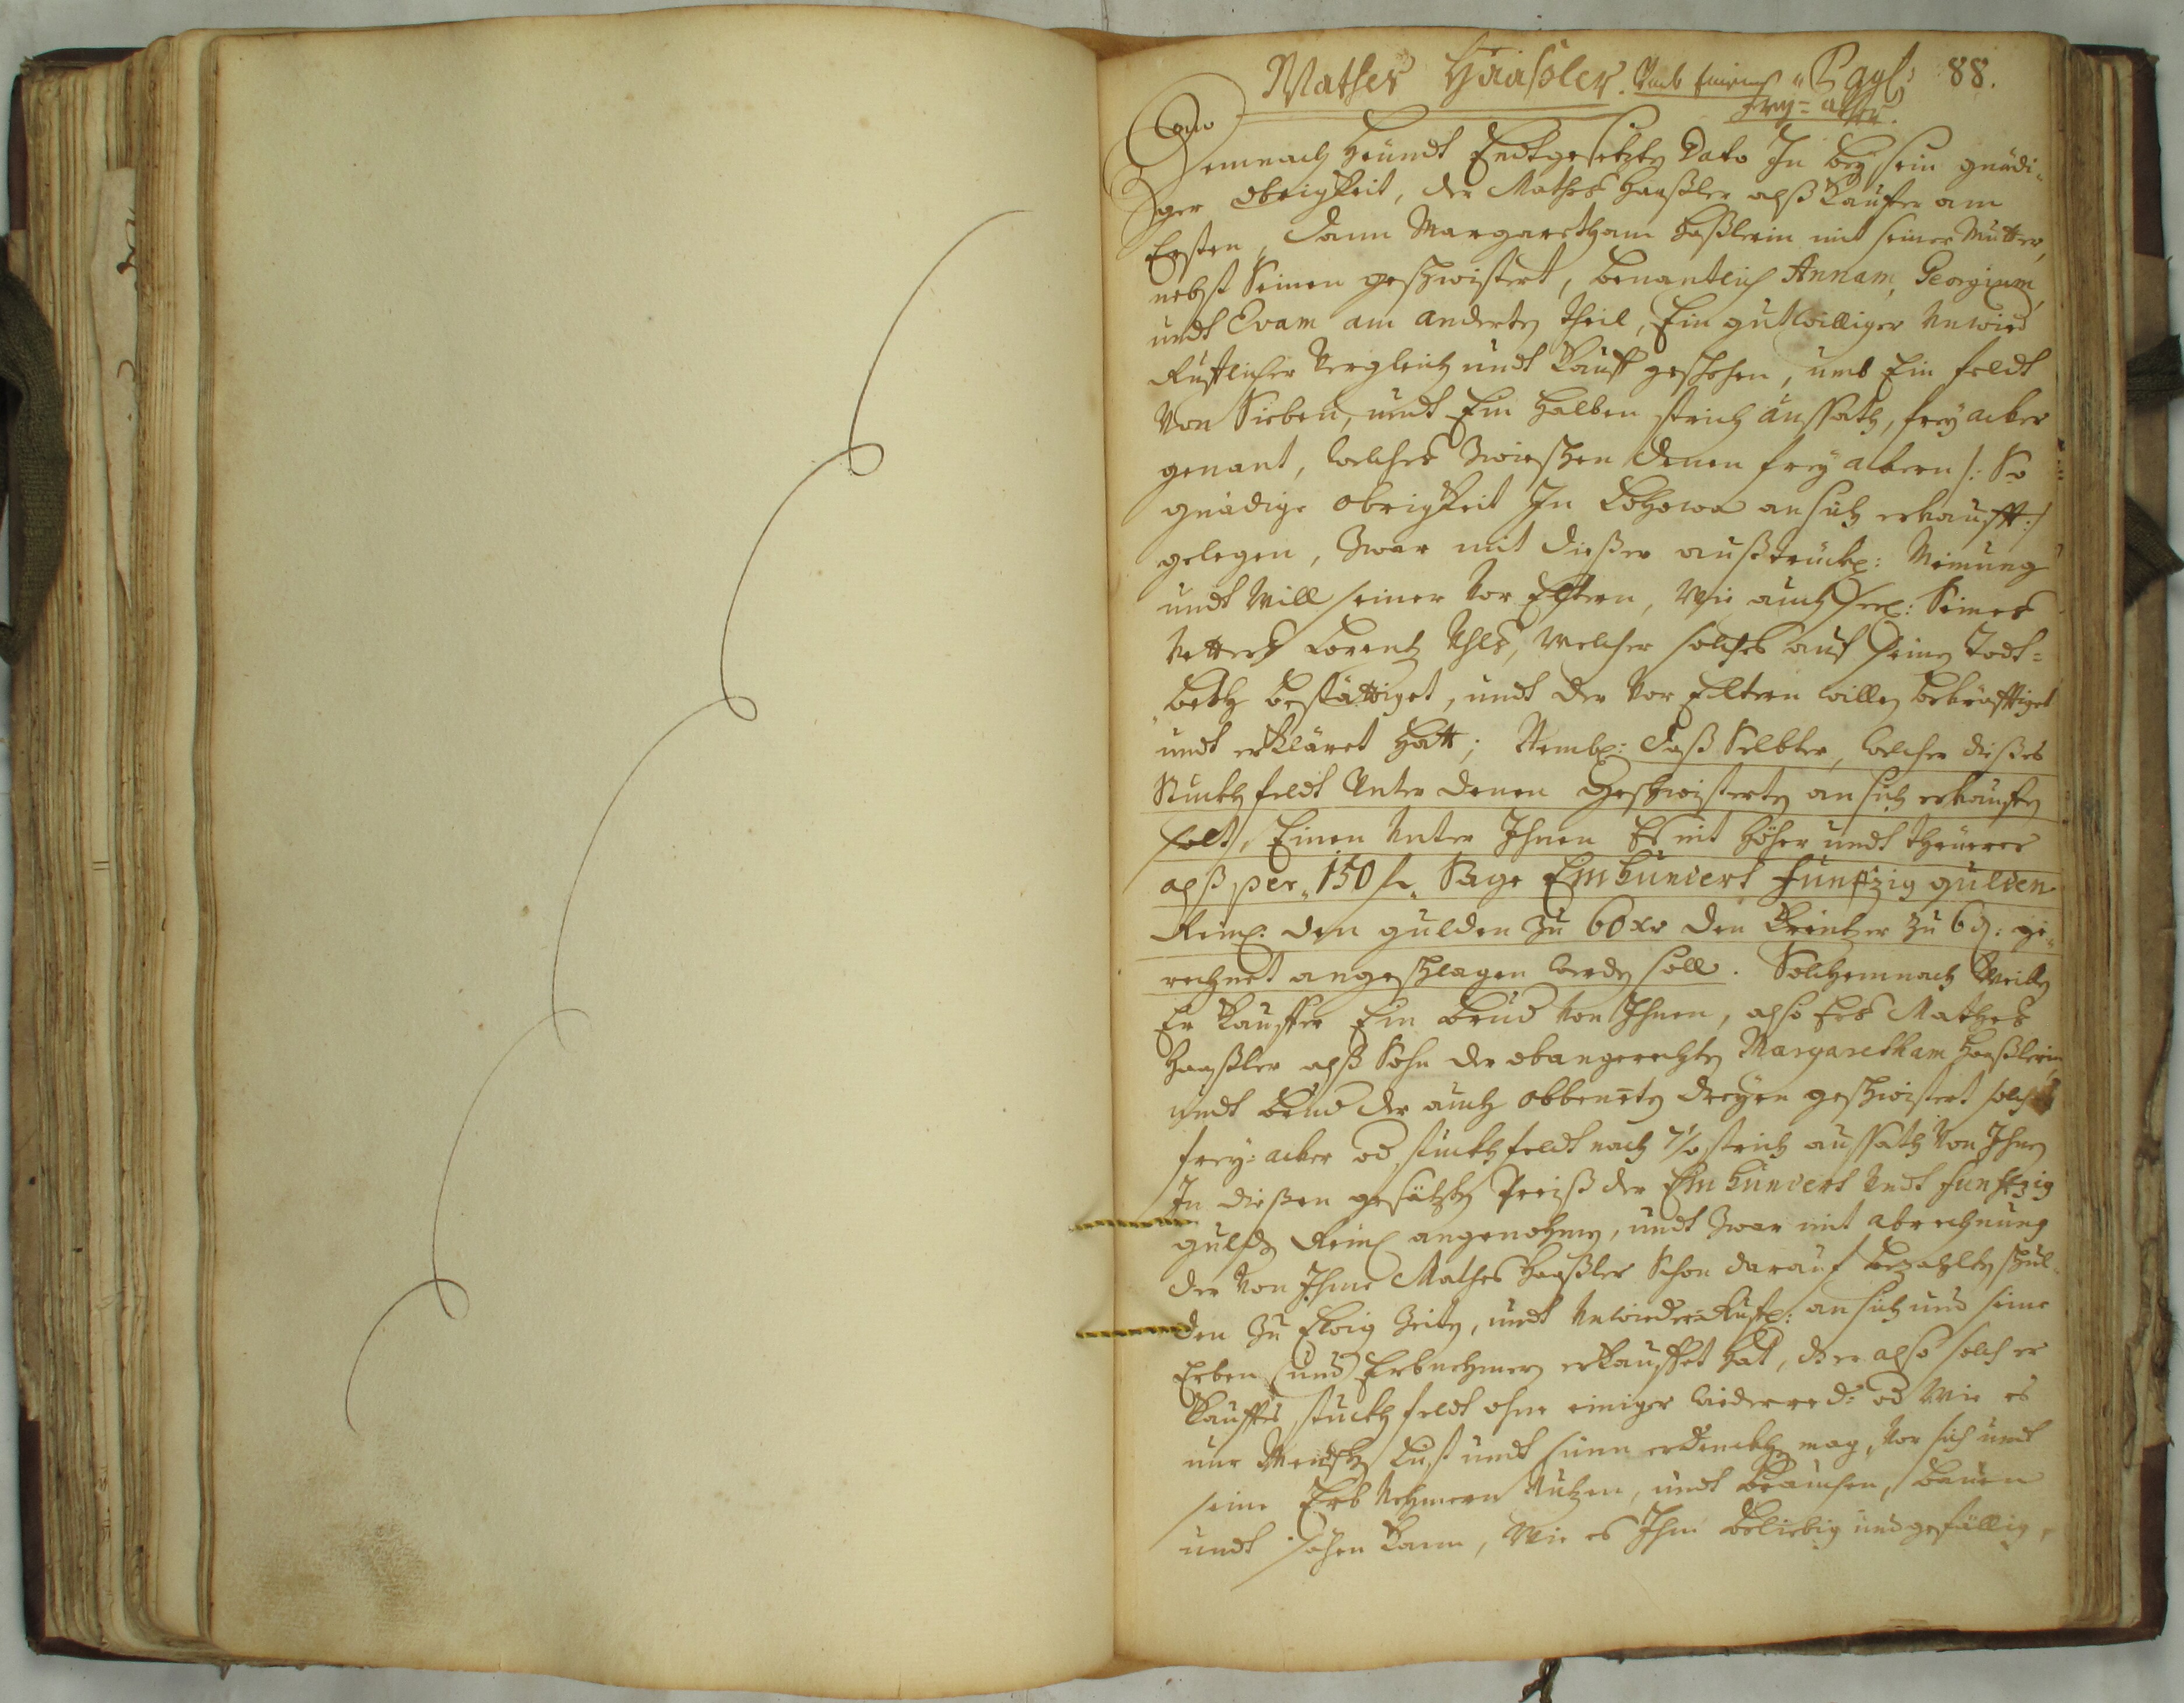 Mathes Haasler. Umb seinen 88.
Frey=acker.
Demnach heundt Endtgesetzten Dato In beÿsein gnädi-
ger Obrigkeit, der Mathes Haaßler alß Kauffer am
Ersten, dann Margaretham Haßlerin mit seiner Mutter,
nebst Seinen geschwistert, benantlich Annam, Georgium,
undt Evam am anderten theil, Ein gutwilliger unwied
Rufflicher Vergleich undt Kauff geschehen, umb Ein feldt
Von Sieben, undt Ein halben strich aussath, freÿ acker
genant, welches Zwischen denen freÿ ackern /: So
gnädige Obrigkeit In an sich erkaufft :/
gelegen, Zwar mit dießer außtrückl: Meinung
undt Will seiner Vor Eltern, Wie auch seel: Seines
Vetters Lorentz, welcher solches auf seinen Todt=
beth bestättiget, undt der Vor Eltern willen bekräfftiget
undt erkläret hatt; Nembl: daß Selbter, welcher dießes
Stuckh feldt Unter denen Geschwisterten an sich erkauffen
solt, Einen unter Ihnen Es nit höher undt theuerer
alß per 150 f. Sage Einhundert funffzig gulden
Reinl: den gulden zu 60 xr den Kreutzer zu 6 ₰: ge-
rechnet angeschlagen werden soll. Solchemnach
Er Kauffer Ein brud von Ihnen, also Er Mathes
Haaßler alß Sohn der obangeregten Margaretham Haaßlerin
undt brud der auch obbenenten dreÿen geschwistert solch
freÿ=acker od stuckh feldt nach 7½ strich aussath Von Ihnen
In dießen gesätzten Preiß der Einhundert undt funffzig
gulden Reinl angenohmen, undt Zwar mit abrechnung
der Von Ihme Mathes Haaßler Schon darauf bezahlten schul-
den zu Ewig Zeiten, undt unwiederRuffl: an sich und seine
Erben und Erbnehmern erkauffet hat, der also solch er
kauffes stuckh feldt ohne einiger wiederred: od Wie es
nur Mensch Lust undt sinn erdenckhen mag, Vor sich undt
seine Erb Nehmern Nutzen, undt brauchen, bauen
undt söhen kann, Wie es Ihm beliebig und gefällig,